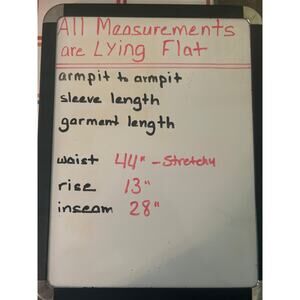 All Measurements
are Lying Flat
armpit to armpit
sleeve length
garment length
waist 44" - Stretchy
rise 13"
inseam 28"